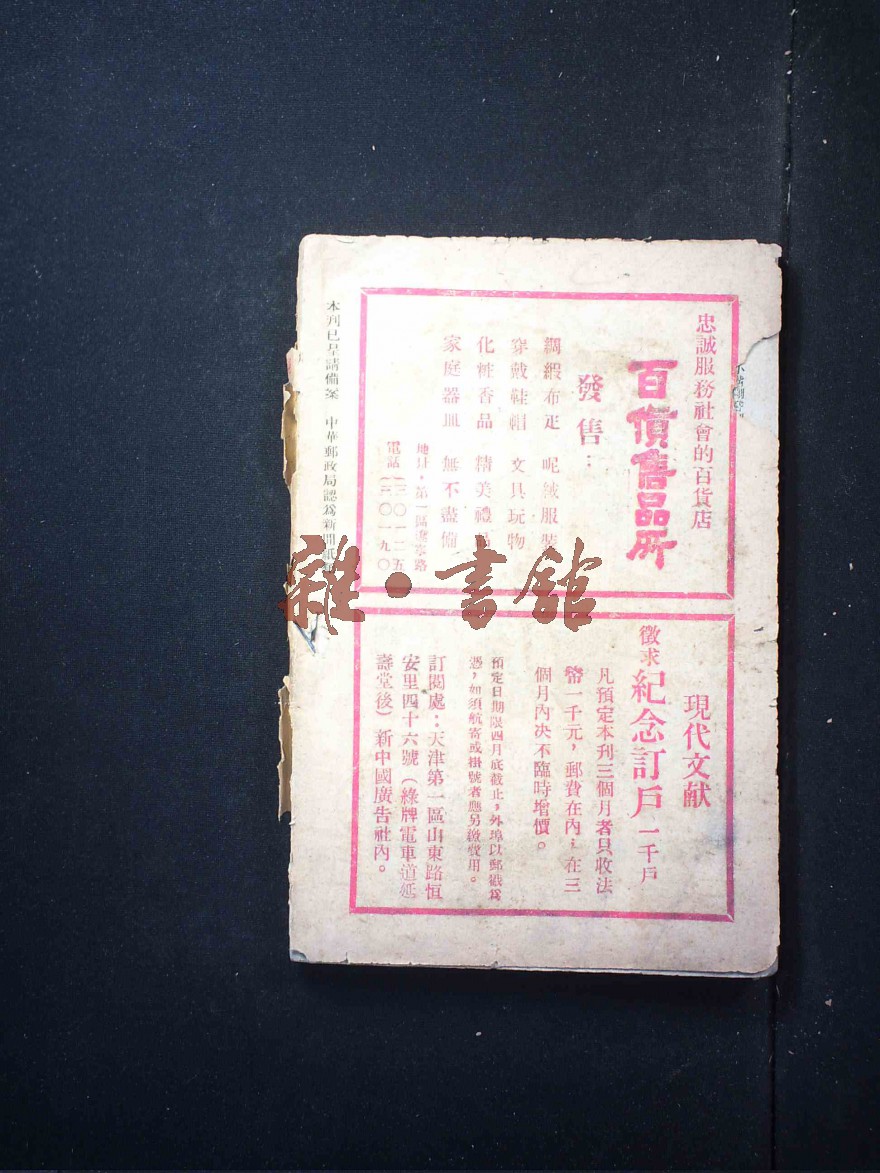 忠誠服務社會的百貨店
百貨售品所
發售：
綢緞布疋 呢絨服裝
穿戴鞋帽 文具玩物
化粧香品 精美禮品
家庭器皿 無不盡備
地址・第一區遼寧路
電話（三）〇一二五
〇一九〇
現代文献
徵求紀念訂戶一千戶
凡預定本刊三個月者只收法
幣一千元，郵費在內；在三
個月內決不臨時增價。
預定日期限四月底截止，外埠以郵戳爲
憑，如須航寄或掛號者應另繳費用。
訂閱處：天津第一區山東路恒
安里四十六號（綠牌電車道延
壽堂後）新中國廣告社內。
本刊已呈請備案 中華郵政局認爲新聞紙類
雜・書館